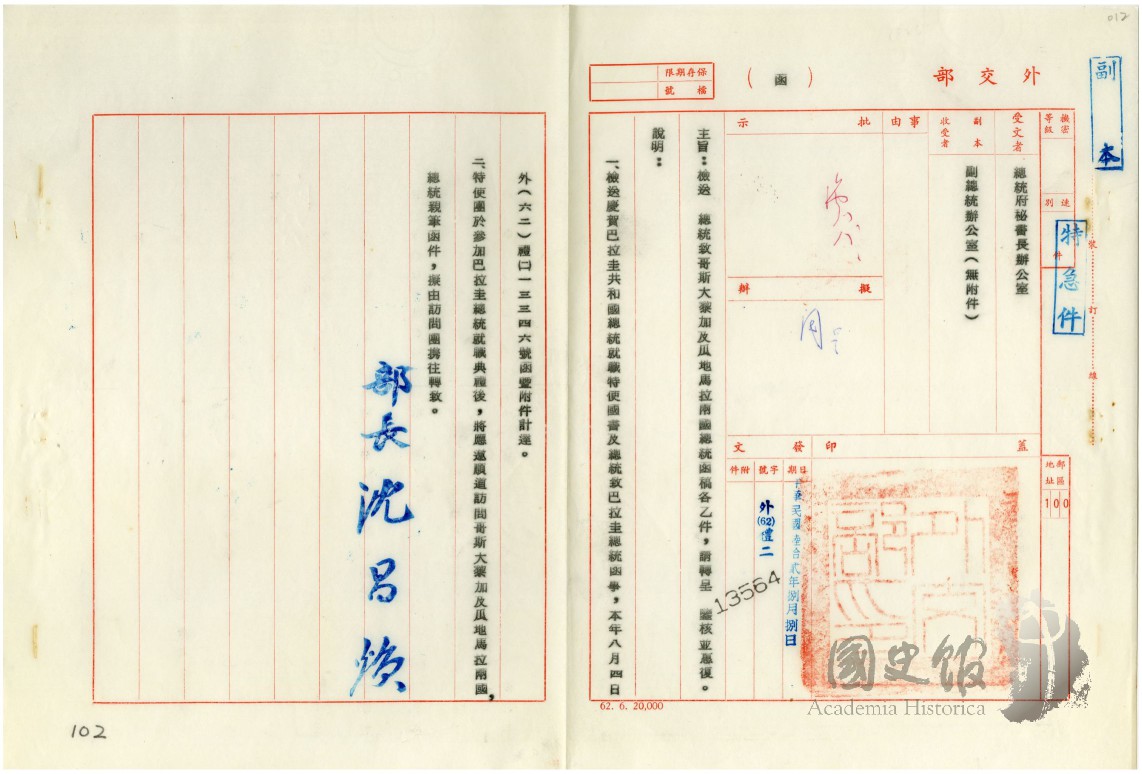 012
副本
外交部
（函）
保存期限
檔號
機密等級
速別
特急件
件
裝
訂
線
郵區地址
100
受文者
總統府秘書長辦公室
副本收受者
副總統辦公室（無附件）
事由
批示
擬辦
蓋印
發文
日期
中華民國陸拾貳年捌月捌日
字號
外(62)禮二
13564
附件
主旨：檢送　總統致哥斯大黎加及瓜地馬拉兩國總統函稿各乙件，請轉呈　鑒核並惠復。
說明：
一、檢送慶賀巴拉圭共和國總統就職特使國書及總統致巴拉圭總統函事，本年八月四日
外（六二）禮㈡一三三四六號函暨附件計達。
二、特使團於參加巴拉圭總統就職典禮後，將應邀順道訪問哥斯大黎加及瓜地馬拉兩國，
總統親筆函件，擬由訪問團攜往轉致。
部長沈昌煥
62. 6. 20,000
國史館
Academia Historica
102